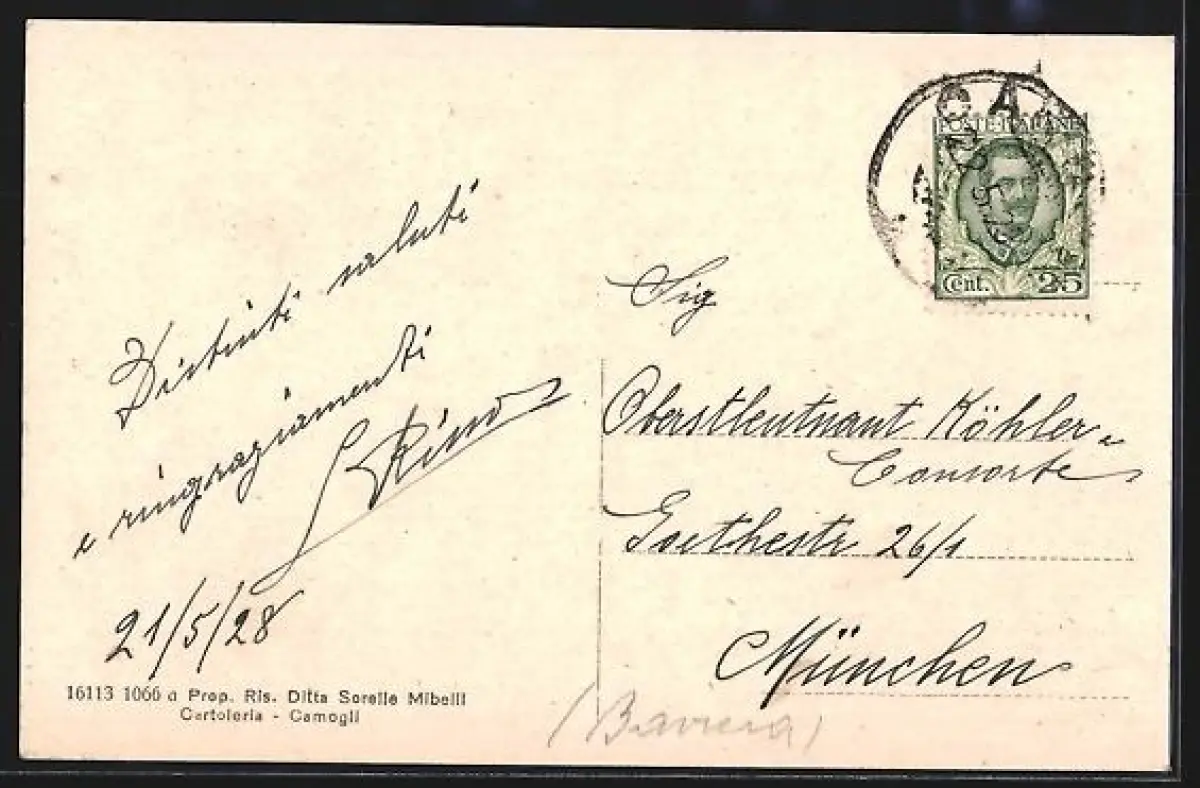 Distinti saluti
e ringraziamenti
Rino
21/5/28
16113 1066 a Prop. Ris. Ditta Sorelle Mibelli
Cartoleria - Camogli
POSTE ITALIANE
Cent. 25
Sig
Oberstleutnant Köhler e
Consorte
Goethestr 26/1
München
(Baviera)